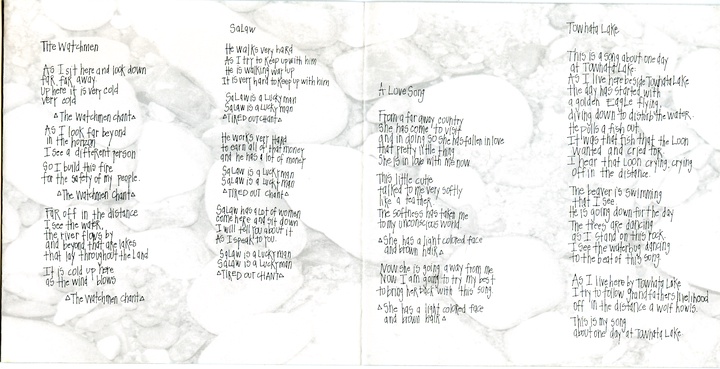 The Watchmen
As I sit here and look down
far, far away
up here it is very cold
very cold
△The Watchmen chant△
As I look far beyond
in the horizon
I see a different person
So I build this fire
for the safety of my people.
△The Watchmen Chant△
Far off in the distance
I see the water,
the river flows by
and beyond that are lakes
that lay throughout the land
It is cold up here
as the wind blows
△The Watchmen chant△
Salaw
He walks very hard
As I try to keep up with him
He is walking way up
It is very hard to keep up with him
Salaw is a Lucky man
Salaw is a Lucky man
△TIRED OUT CHANT△
He works very Hard
to earn all of that money
and he has a lot of money
Salaw is a Lucky man
Salaw is a Lucky man
△TIRED OUT CHANT△
Salaw has a Lot of women
come here and sit down
I will tell you about it
As I speak to you.
Salaw is a Lucky man
Salaw is a Lucky man
△TIRED OUT CHANT△
A Love Song
From a far away country
She has come to visit
and in doing so she has fallen in love
that pretty little thing
She is in love with me now
This little cutie
talked to me very softly
like a feather
The softness has taken me
to my unconscious world
△She has a light colored face
and brown hair△
Now she is going away from me
Now I am going to try my best
to bring her back with this song
△She has a light colored face
and brown hair△
Towhata Lake
This is a song about one day
at Towhata Lake.
As I live here beside Towhata Lake
the day has started with
a golden Eagle flying,
diving down to disturb the water.
He pulls a fish out.
It was that fish that the Loon
wanted and cried for.
I hear that Loon crying, crying
off in the distance.
The beaver is swimming
that I see
He is going down for the day
The trees are dancing
as I stand on this rock.
I see the waterbug dancing
to the beat of this song.
As I live here by Towhata Lake
I try to follow grandfathers livelihood
off in the distance a wolf howls.
This is my song
about one day at Towhata Lake.